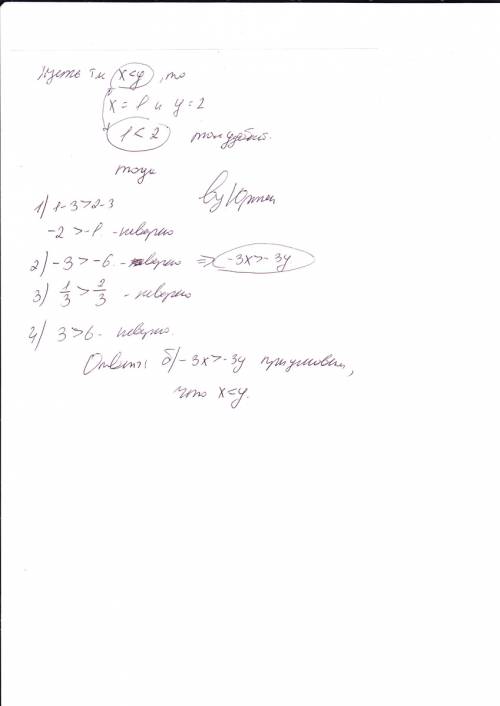 Пусть т.к x<y, то
x = 1 и y = 2
1 < 2
тогда
1) 1-3>2-3
-2 > -1 - неверно
by Юрик
2) -3 > -6 - верно ⇒ -3x>-3y
3) 1/3 > 2/3 - неверно
4) 3>6 - неверно.
Ответ: б) -3x>-3y при условии,
что x<y.